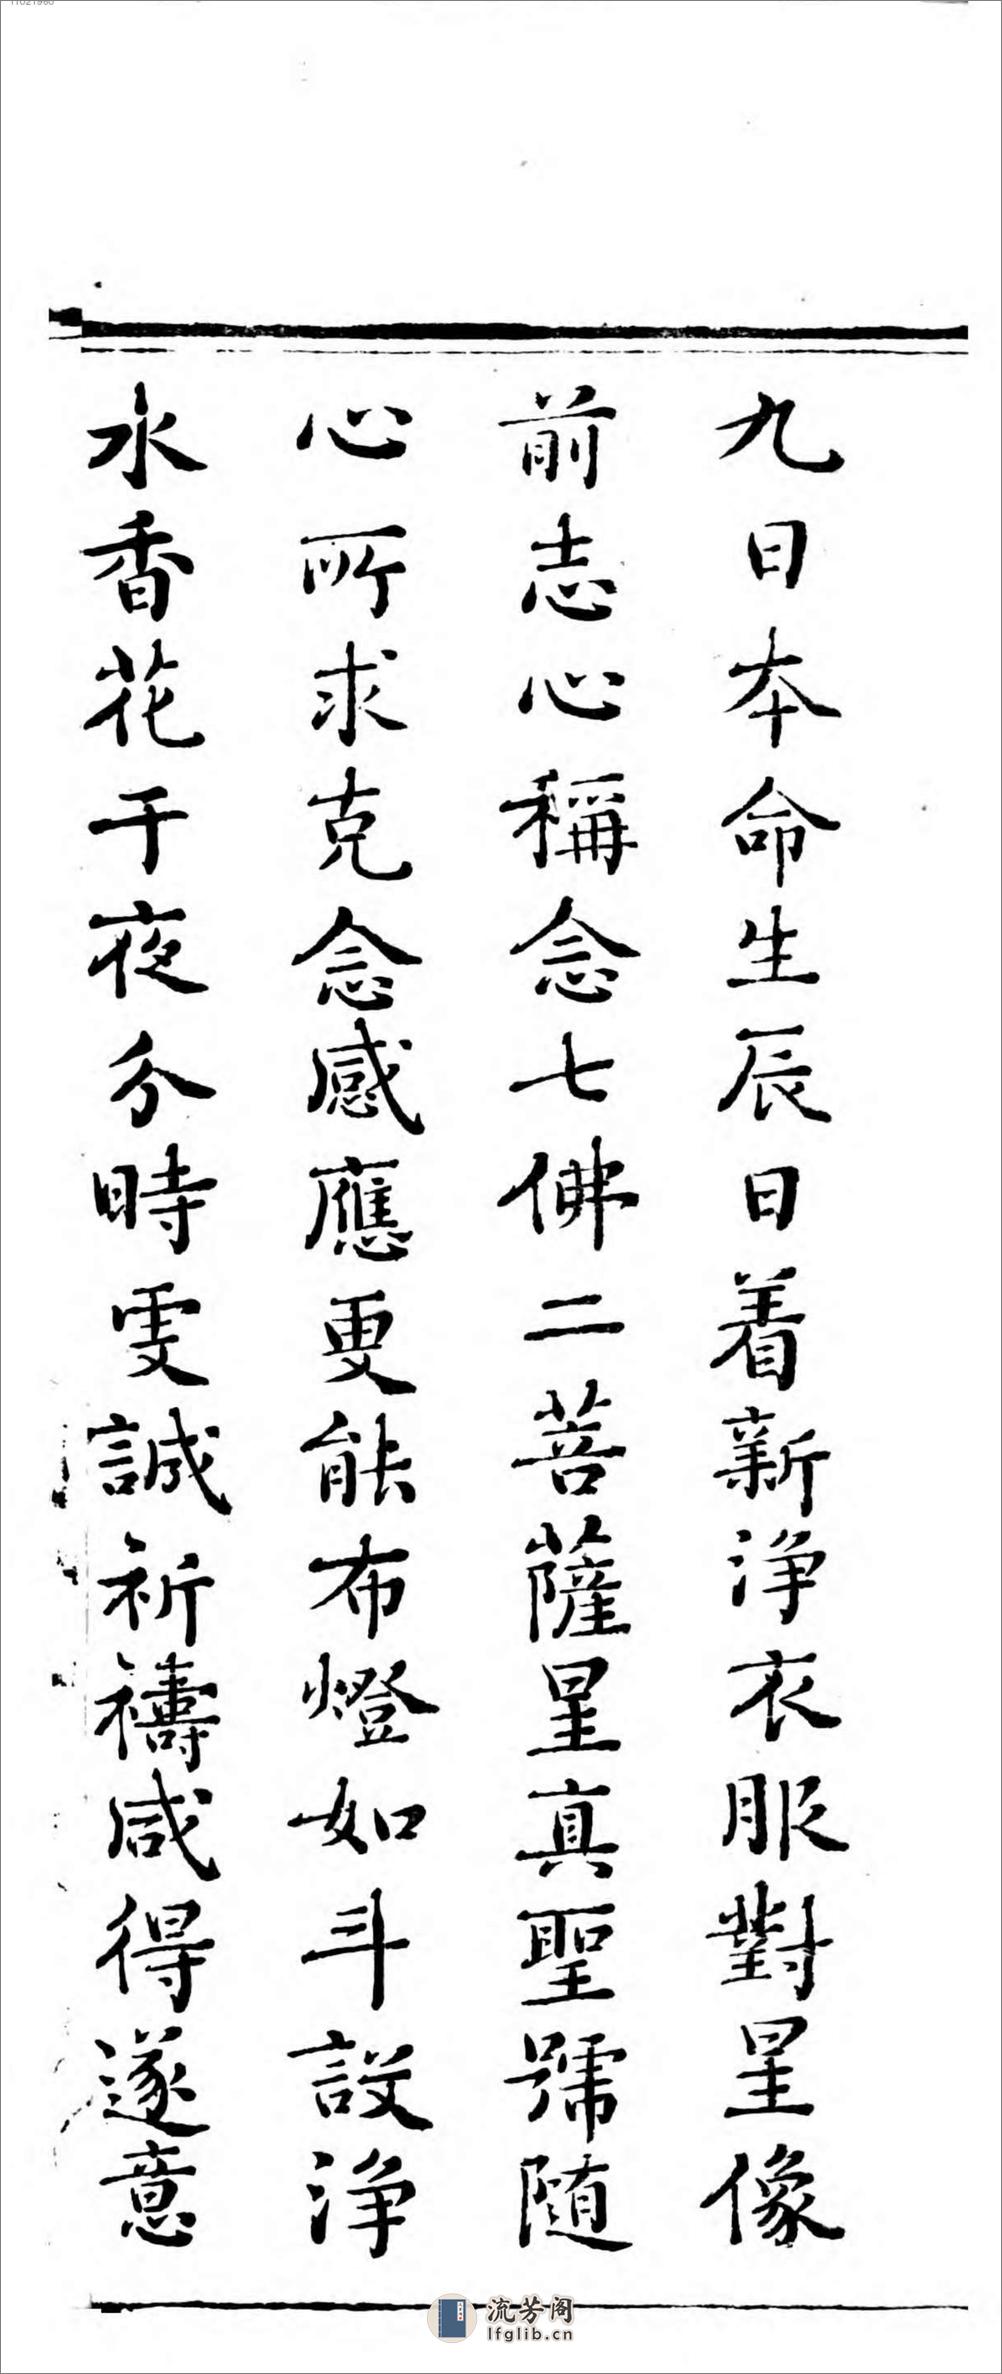 九日本命生辰日着新淨衣服對星像
前志心稱念七佛二菩薩星真聖號隨
心所求克念感應更能布燈如斗設淨
水香花于夜分時虔誠祈禱咸得遂意
流芳阁
lfglib.cn